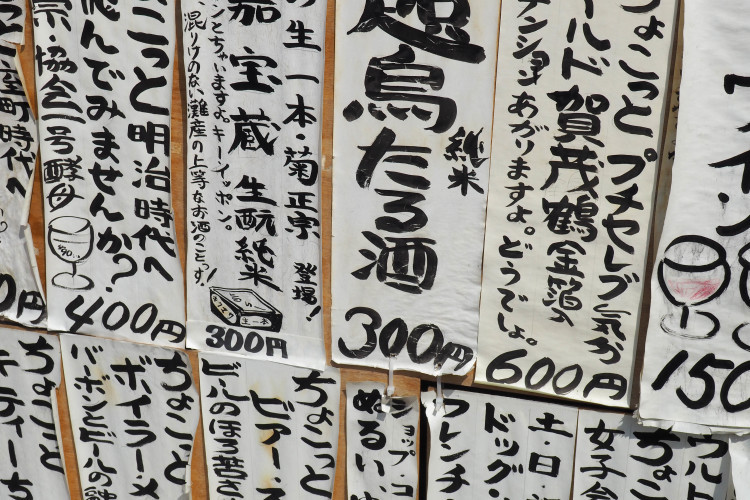 ちょこっと プチセレブ気分
ールド賀茂鶴金箔入
テンションあがりますよ。どうでしょ。
600円
超鳥たる酒
純米
300円
の生一本・菊正宗 登場!
嘉宝蔵 生酛純米
ンとちゃいますよ。キーイッポン。
混りけのない灘産の上等なお酒のことっす!
生一本
300円
こっと明治時代へ
飛んでみませんか?
宗・協会一号酵母
400円
室町時代へ
0円
150
ウルト
ちょこ
女子会
土・日・
ドッグ・
フレンチ
ショップ・コ
ぬるい
ちょこっと
ビアー・ス
ビールのほろ苦さ
ちょこっと
ボイラーメ
バーボンとビールの
ちょこっと
キティーち